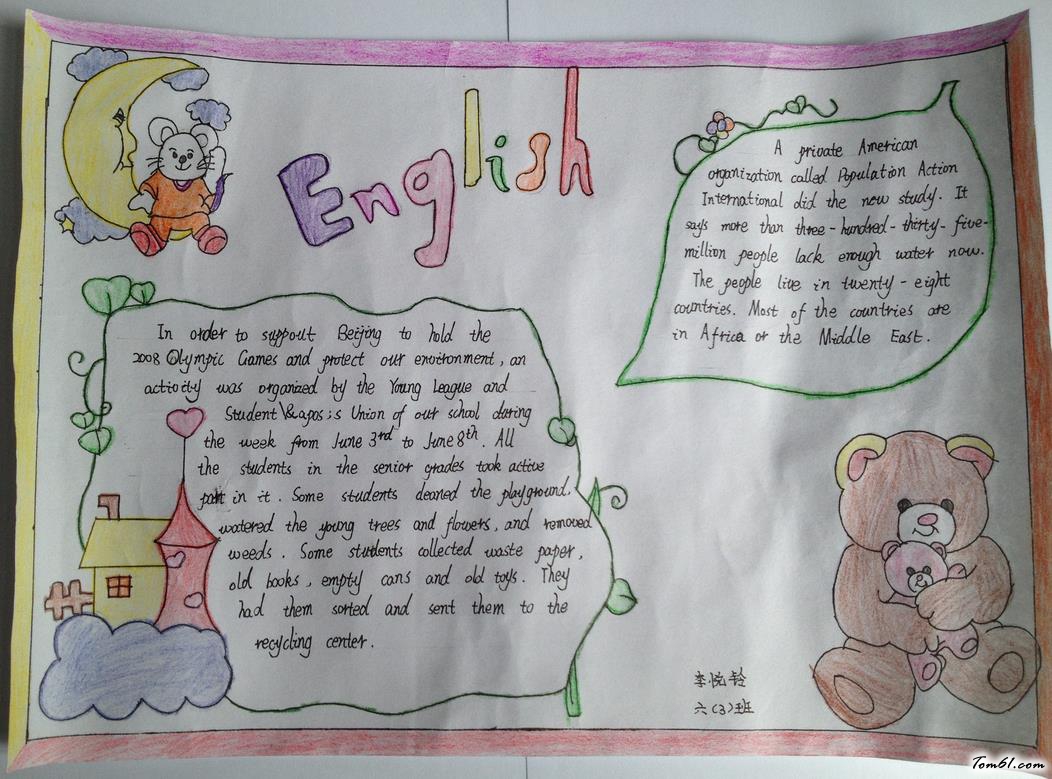 English
A private American
organization called Population Action
International did the now study. It
says more than three-hundred-thirty-five-
million people lack enough water now.
The people live in twenty-eight
countries. Most of the countries are
in Africa or the Middle East.
In order to suppout Beijing to hold the
2008 Olympic Games and protect our environment, an
activity was organized by the Young League and
Student \&apos;s Union of our school during
the week from June 3rd to June 8th. All
the students in the senior grades took active
part in it. Some students cleaned the playground,
watered the young trees and flowers, and removed
weeds. Some students collected waste paper,
old books, empty cans and old toys. They
had them sorted and sent them to the
recycling center.
李悦铃
六(3)班
Tom61.com